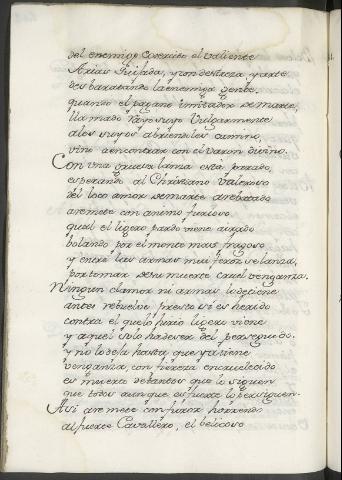 del enemigo Corrio el valiente
Arias Quijada, y con destreza y arte
des baratando la enemiga gente.
quando el pagano imitador de marte,
llamado Vulgarmente
a los suyos abriendoles camino,
vino a encontrar con el varon divino.
Con una gruesa lanza esta parado,
esperando al Christiano Valeroso
del loco amor de marte arrebatado
aremete con animo furioso.
qual el ligero pardo viene ayrado
bolando por el monte mas fragoso
y entre las armas mui feroz se lanza,
por tomar de su muerte cruel venganza.
Ningun clamor ni armas lo detiene
antes rebuelve presto si es herido
contra el que lo furio ligero viene
y aquel solo ha de ser del perseguido.
y no lo dexa hasta que ya tiene
venganza, con fiereza encruelecido
es muerto de tantos que lo siguen
que todos aunque es fuerte lo persiguen.
Asi aremete con furor horrendo
al fuerte Cavallero, el belicoso